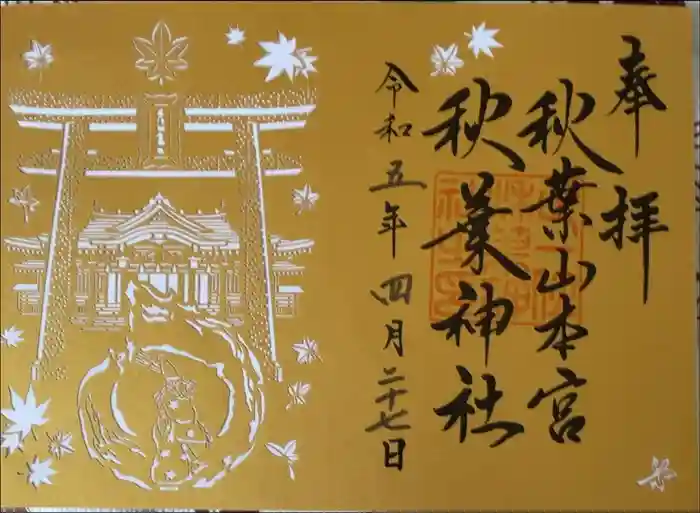 奉拝
秋葉山本宮
秋葉神社
令和五年四月二十七日